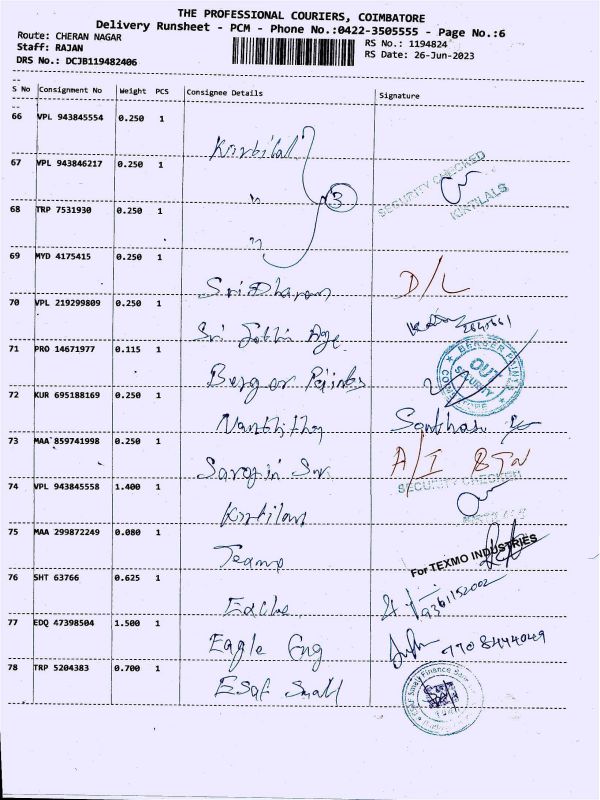 THE PROFESSIONAL COURIERS, COIMBATORE
Delivery Runsheet - PCM - Phone No.:0422-3505555 - Page No.:6
Route: CHERAN NAGAR
RS No.: 1194824
Staff: RAJAN
RS Date: 26-Jun-2023
DRS No.: DCJB119482406
S No Consignment No Weight PCS Consignee Details Signature
66 VPL 943845554 0.250 1 Kirtilal
67 VPL 943846217 0.250 1 " 3 SECURITY CHECKED KIRTILALS
68 TRP 7531930 0.250 1 "
69 MYD 4175415 0.250 1 Sridharan D/L
70 VPL 219299809 0.250 1 Sri
71 PRO 14671977 0.115 1 Berger Paints BERGER PAINTS OUT SECURITY COIMBATORE
72 KUR 695188169 0.250 1 Santhosh
73 MAA 859741998 0.250 1 A/I BTN
74 VPL 943845558 1.400 1 Kirtilal SECURITY CHECKED KIRTILALS
75 MAA 299872249 0.080 1 For TEXMO INDUSTRIES
76 SHT 63766 0.625 1 9361152002
77 EDQ 47398504 1.500 1 Eagle Eng 7708444049
78 TRP 5204383 0.700 1 ESAF Small ESAF Small Finance Bank